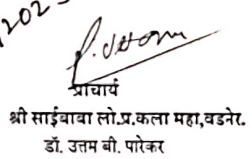 प्राचार्य
श्री साईबाबा लो.प्र.कला महा,वडनेर.
डॉ. उत्तम बी. पारेकर